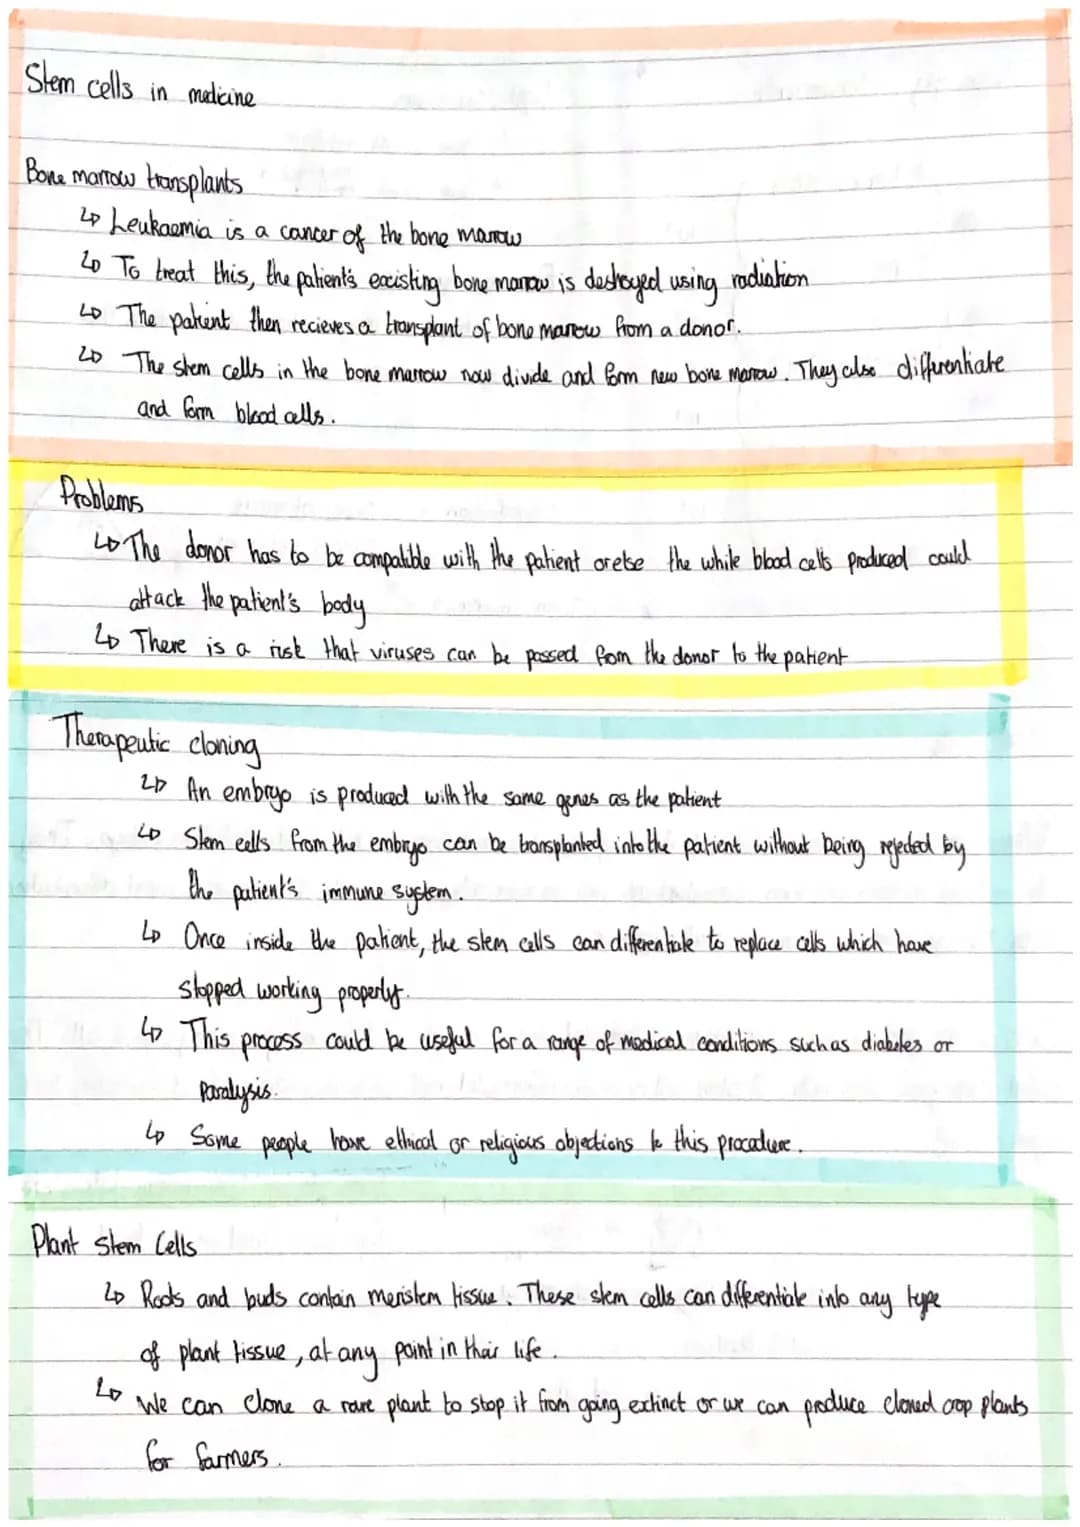 Stem cells in medicine
Bone marrow transplants
↳ Leukaemia is a cancer of the bone marrow
↳ To treat this, the patient's excisting bone marrow is destroyed using radiation
↳ The patient then recieves a transplant of bone marrow from a donor.
↳ The stem cells in the bone marrow now divide and form new bone marrow. They also differentiate
and form blood cells.
Problems
↳ The donor has to be compatible with the patient orelse the white blood cells produced could
attack the patient's body
↳ There is a risk that viruses can be passed from the donor to the patient
Therapeutic cloning
↳ An embryo is produced with the same genes as the patient
↳ Stem cells from the embryo can be transplanted into the patient without being rejected by
the patient's immune system.
↳ Once inside the patient, the stem cells can differentiate to replace cells which have
stopped working properly.
↳ This process could be useful for a range of medical conditions such as diabetes or
Paralysis.
↳ Some people have ethical or religious objections to this procedure.
Plant Stem Cells
↳ Roots and buds contain meristem tissue. These stem cells can differentiate into any type
of plant tissue, at any point in their life.
↳ We can clone a rare plant to stop it from going extinct or we can produce cloned crop plants
for farmers.